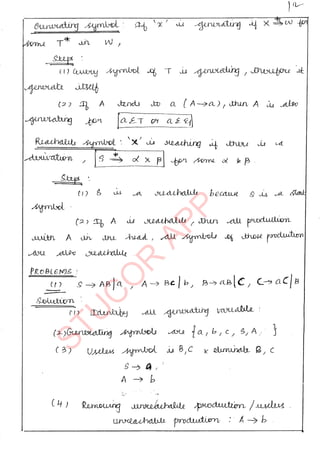 12
Generating symbol : If 'x' is generating if X *⇒ w for
some T* in W,
Steps :
(1) Every symbol of T is generating, therefore it
generate itself
(2) If A tends to a (A→a), then A is also
generating for a ε T or a ε ε
Reachable symbol : 'X' is reaching if there is a
derivation, S *→ α X β for some α b β
Step :
(1) S is a reachable because S is a start
symbol
(2) If A is reachable, then all production
with A in the head, all symbols of those production
are also reachable
PROBLEMS :
(1) S → AB|a, A → BC|b, B → aB|C, C → aC|B
Solution :
(1) Identify all generating variable :
(2) Generating symbols are {a, b, c, S, A, }
(3) Useless symbol is B,C x eliminate B, C
S → a,
A → b
(4) Removing unreachable production / useless
unreachable production : A → b
STUCOR APP